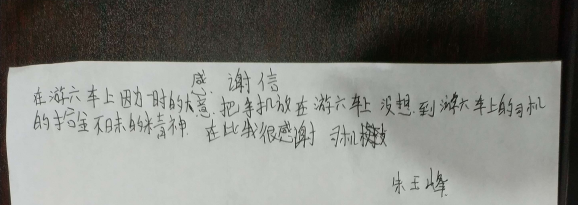 感谢信
在游六车上因为一时的大意.把手机放在游六车上没想到游六车上的司机
的拾金不昧的精神.在此我很感谢司机
朱王峰